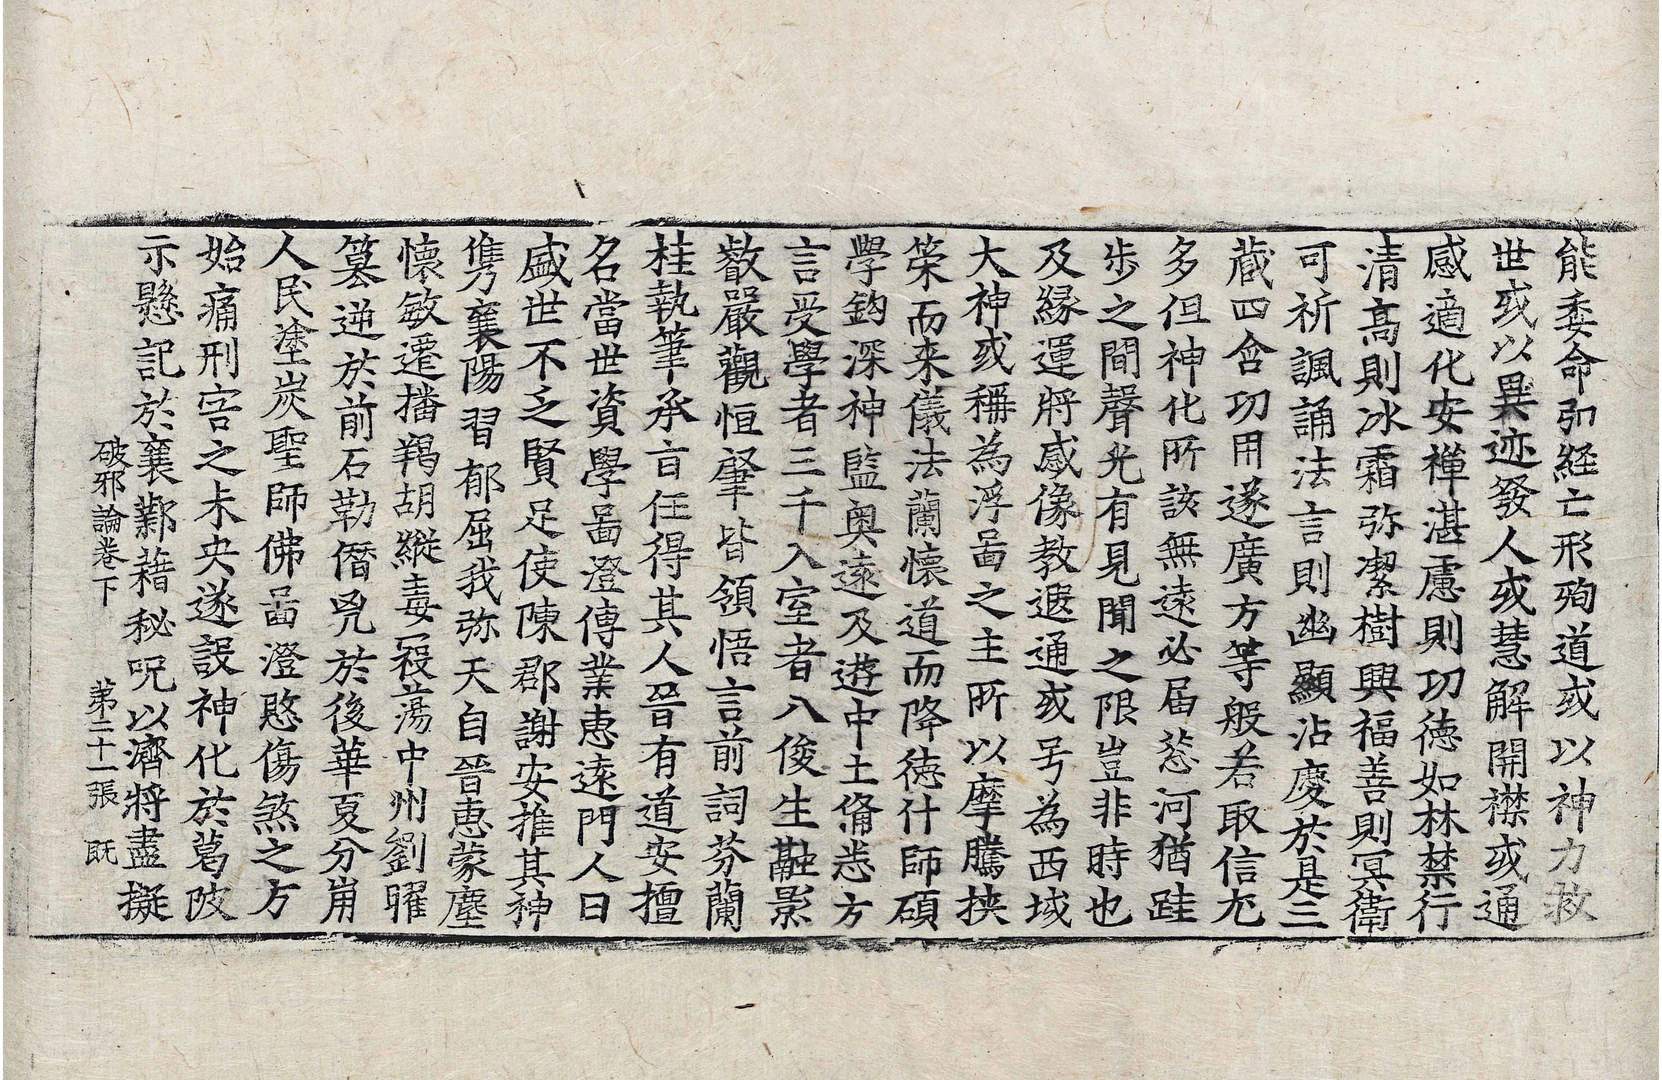 能委命弘経亡形殉道或以神力救
世或以異迹發人或慧解開襟或通
感適化安禪湛慮則功徳如林禁行
清高則冰霜弥潔樹興福善則冥衛
可祈諷誦法言則幽顯沾慶於是三
蔵四含功用遂廣方等般若取信尤
多但神化所該無遠必届慈河猶跬
歩之間聲光有見聞之限豈非時也
及縁運將感像教遐通或号為西域
大神或稱為浮啚之主所以摩騰挟
筞而来儀法蘭懐道而降徳什師碩
學鈎深神監奥遠及遊中土俻悉方
言受學者三千入室者八俊生融影
叡嚴觀恒肇皆領悟言前詞芬蘭
桂執筆承旨任得其人晉有道安擅
名當世資學啚澄傳業恵遠門人曰
盛世不乏賢足使陳郡謝安推其神
雋襄陽習郁屈我弥天自晉恵蒙塵
懐敏遷播羯胡縱毒稄蕩中州劉曜
篡逆於前石勒僭兇於後華夏分崩
人民塗炭聖師佛啚澄愍傷煞之方
始痛刑害之未央遂設神化於葛陂
示懸記於襄鄴藉秘呪以濟將盡擬
破邪論卷下 第二十一張 既